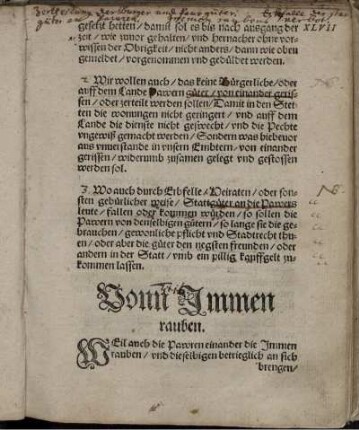 XLVII
gesetzt hetten / damit sol es bis nach ausgang der
zeit / wie zuuor gehalten / vnd hernacher ohne vor-
wissen der Obrigkeit / nicht anders / dann wie oben
gemeldet / vorgenommen vnd geduldet werden.
2. Wir wollen auch / das keine Bürgerliche / oder
auff dem Lande Pawern güter / von einander geris-
sen / oder zerteilt werden sollen / Damit in den Stet-
ten die wonungen nicht geringert / vnd auff dem
Lande die dienste nicht geswecht / vnd die Pechte
vngewiß gemacht werden / Sondern was bieuenor
aus vnuerstande in vnsern Embtern / von einander
gerissen / widerumb zusamen gelegt vnd gestossen
werden sol.
3. Wo auch durch Erbfelle / Heiraten / oder son-
sten gebürlicher weise / Stattgüter an die Pawers
leute / fallen oder kommen würden / so sollen die
Pawern von denselbigen gütern / so lange sie die ge-
brauchen / gewonliche pflicht vnd Stadtrecht thu-
en / oder aber die güter den negsten freunden / oder
andern in der Statt / vmb ein pillig kauffgelt zu-
kommen lassen.
Vonn Immen
rauben.
WEil auch die Pawren einander die Immen
rauben / vnd dieselbigen betrieglich an sich
brengen /